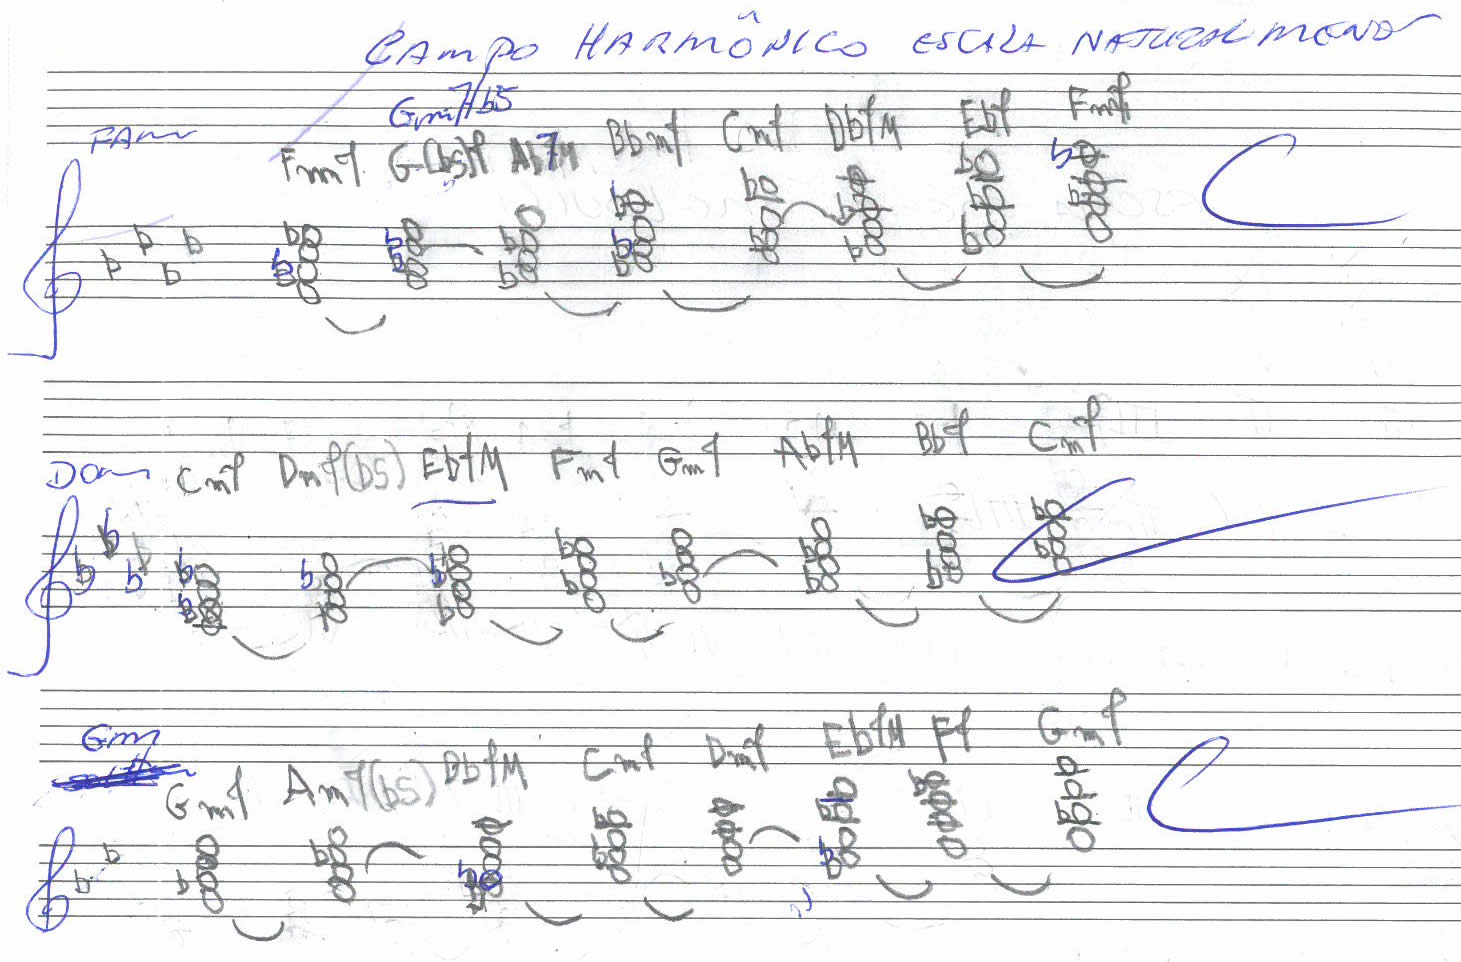 CAMPO HARMÔNICO ESCALA NATURAL MENOR
Gm7/b5
FAm
Fm7 G-(b5)7 Ab7M Bbm7 Cm7 Db7M Eb7 Fm7
DOm Cm7 Dm7(b5) Eb7M Fm7 Gm7 Ab7M Bb7 Cm7
Gm
Gm7 Am7(b5) Bb7M Cm7 Dm7 Eb7M F7 Gm7